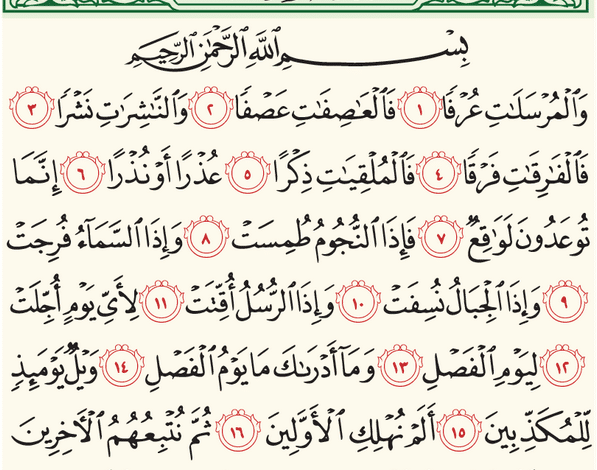 بِسْمِ ٱللَّهِ ٱلرَّحْمَٰنِ ٱلرَّحِيمِ
وَٱلْمُرْسَلَٰتِ عُرْفًا ١ فَٱلْعَٰصِفَٰتِ عَصْفًا ٢ وَٱلنَّٰشِرَٰتِ نَشْرًا ٣
فَٱلْفَٰرِقَٰتِ فَرْقًا ٤ فَٱلْمُلْقِيَٰتِ ذِكْرًا ٥ عُذْرًا أَوْ نُذْرًا ٦ إِنَّمَا
تُوعَدُونَ لَوَٰقِعٌ ٧ فَإِذَا ٱلنُّجُومُ طُمِسَتْ ٨ وَإِذَا ٱلسَّمَآءُ فُرِجَتْ
٩ وَإِذَا ٱلْجِبَالُ نُسِفَتْ ١٠ وَإِذَا ٱلرُّسُلُ أُقِّتَتْ ١١ لِأَىِّ يَوْمٍ أُجِّلَتْ
١٢ لِيَوْمِ ٱلْفَصْلِ ١٣ وَمَآ أَدْرَىٰكَ مَا يَوْمُ ٱلْفَصْلِ ١٤ وَيْلٌ يَوْمَئِذٍ
لِّلْمُكَذِّبِينَ ١٥ أَلَمْ نُهْلِكِ ٱلْأَوَّلِينَ ١٦ ثُمَّ نُتْبِعُهُمُ ٱلْءَاخِرِينَ